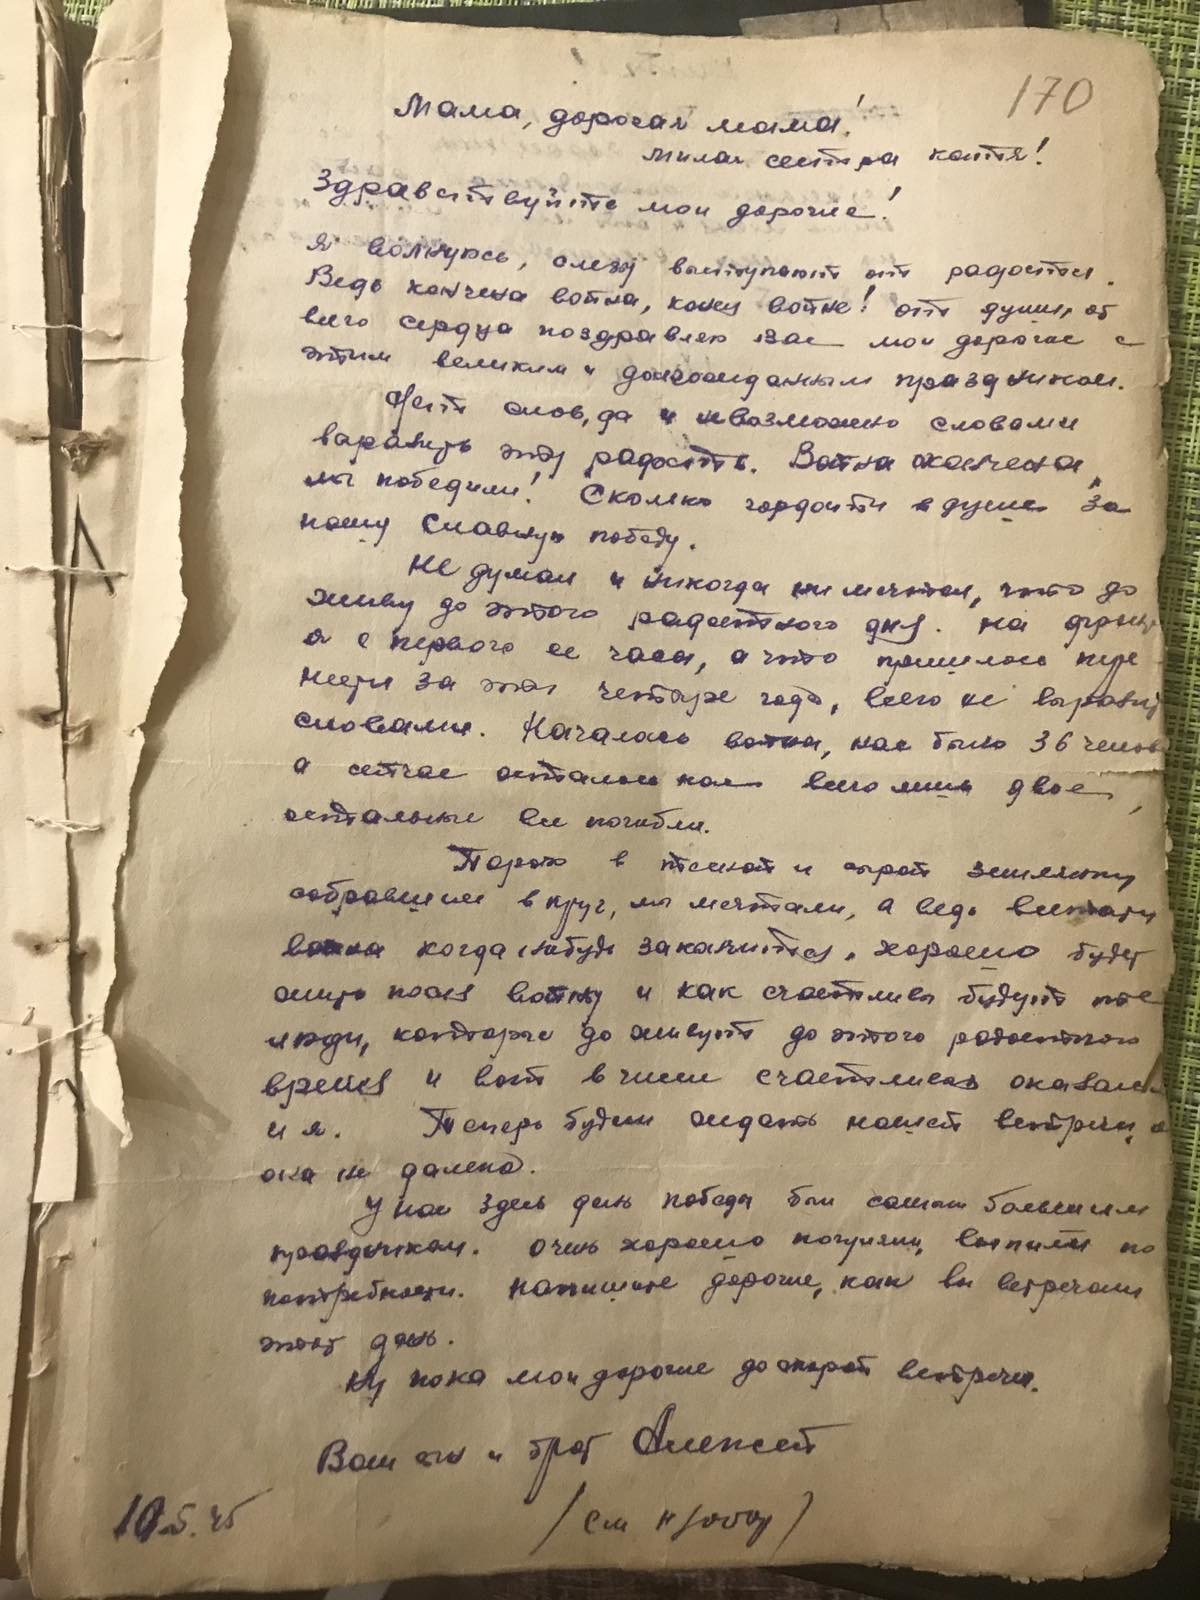 170
Мама, дорогая мама!
Милая сестра Катя!
Здравствуйте мои дорогие!
Я волнуюсь, слезы выступают от радости.
Ведь кончена война, конец войне! От души, от
всего сердца поздравляю вас мои дорогие с
этим великим и долгожданным праздником.
Нет слов, да и невозможно словами
выразить эту радость. Война окончена,
мы победили! Сколько гордости в душе за
нашу славную победу.
Не думал и никогда не мечтал, что до
живу до этого радостного дня. На фронте
я с первого ее часа, а что пришлось пере
нести за эти четыре года, всего не выразить
словами. Началась война, нас было 36 челов
а сейчас осталось нас всего лишь двое,
остальные все погибли.
Порою в тесной и сырой землянке
собравшись в круг, мы мечтали, а ведь
война когда нибудь закончится, хорошо будет
жить после войны и как счастливы будут те
люди, которые до живут до этого радостного
время и вот в числе счастливых оказался
и я. Теперь будем ждать нашей встречи, а
она не далека.
У нас здесь день победы был самым большим
праздником. Очень хорошо погуляли, выпили по
потребности. Напишите дорогие, как вы встречали
этот день.
Ну пока мои дорогие до скорой встречи.
Ваш сын и брат Алексей
10.5.45
(см н/обор)